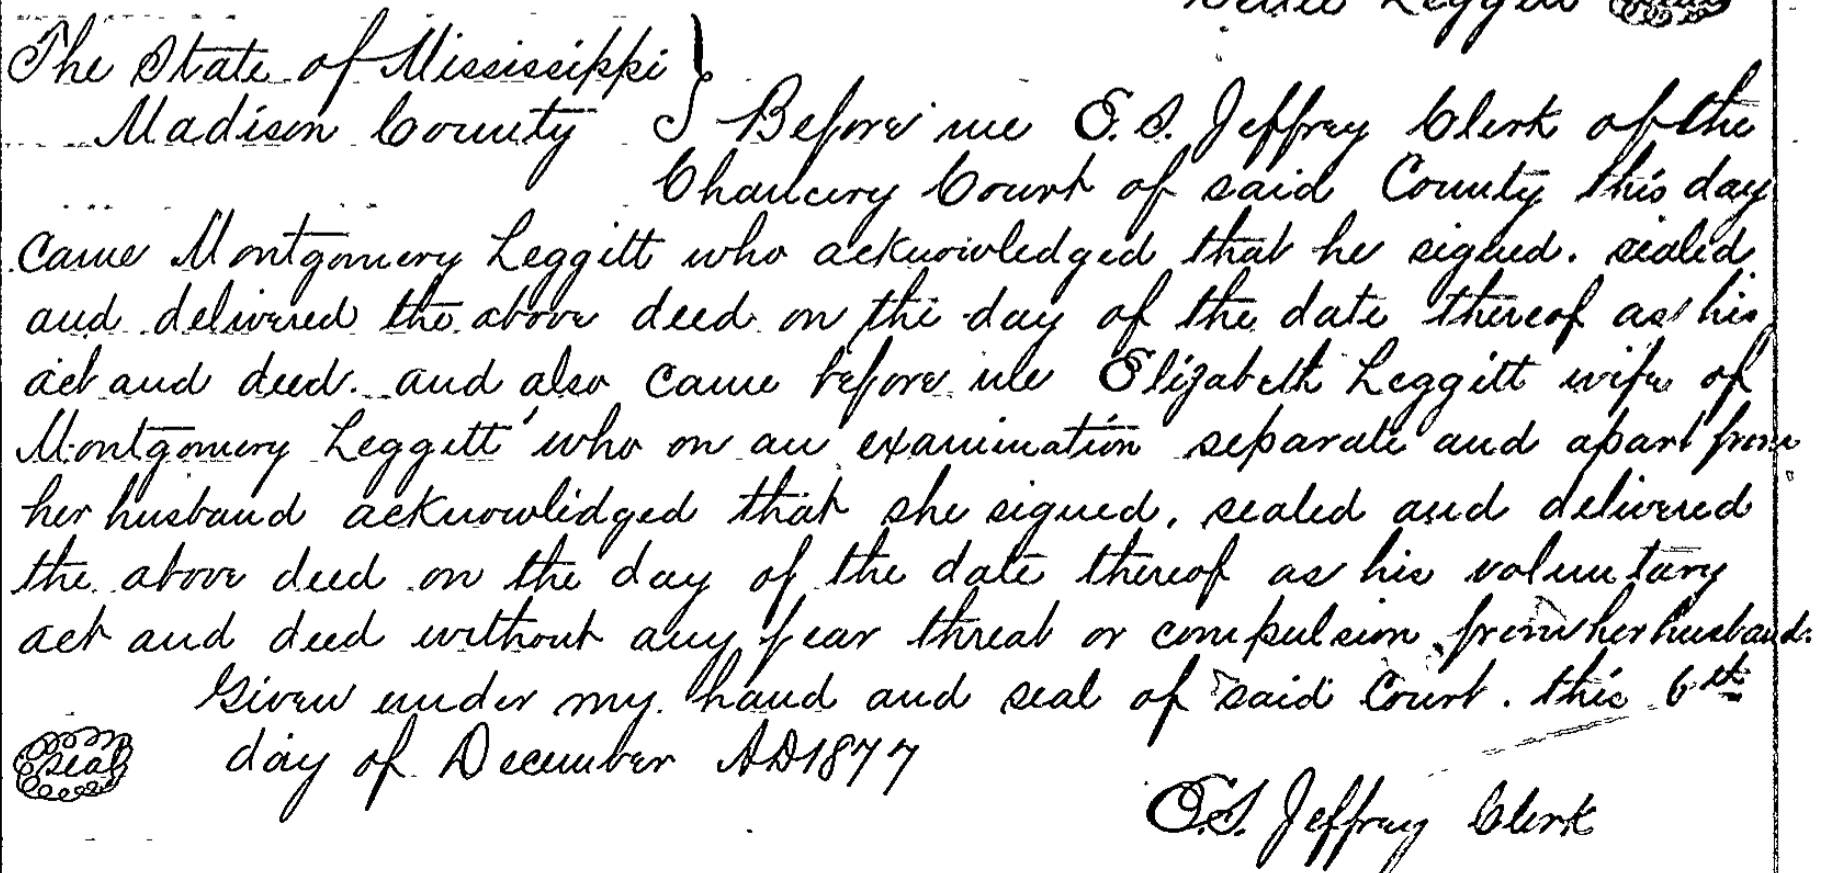 Leggett
The State of Mississippi
Madison County } Before me E. S. Jeffrey Clerk of the
Chancery Court of said County this day
came Montgomery Leggitt who acknowledged that he signed. sealed
and delivered the above deed on the day of the date thereof as his
act and deed. and also came before me Elizabeth Leggitt wife of
Montgomery Leggett who on an examination separate and apart from
her husband acknowlidged that she signed, sealed and delivered
the above deed on the day of the date thereof as his voluntary
act and deed without any fear threat or compulsion from her husband.
Given under my hand and seal of said Court. this 6th
seal day of December AD 1877
E.S. Jeffrey Clerk